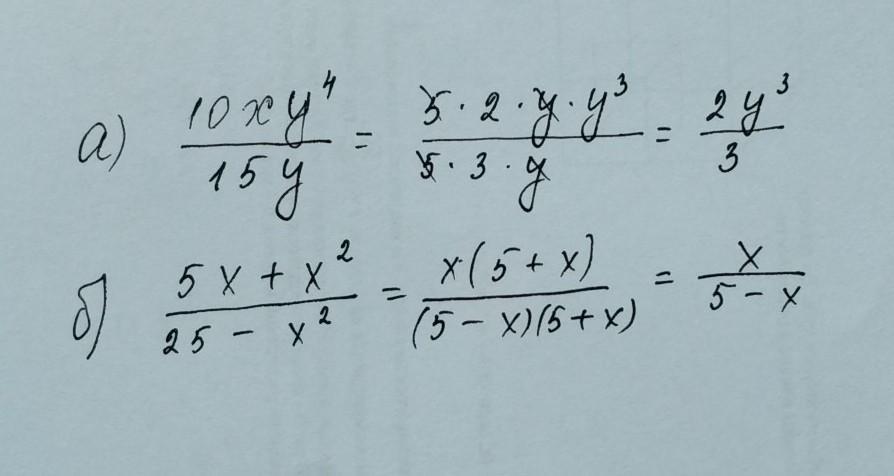 а) 10xy⁴/15y = 5·2·y·y³/5·3·y = 2y³/3
б) 5x + x²/25 − x² = x(5 + x)/(5 − x)(5 + x) = x/5 − x